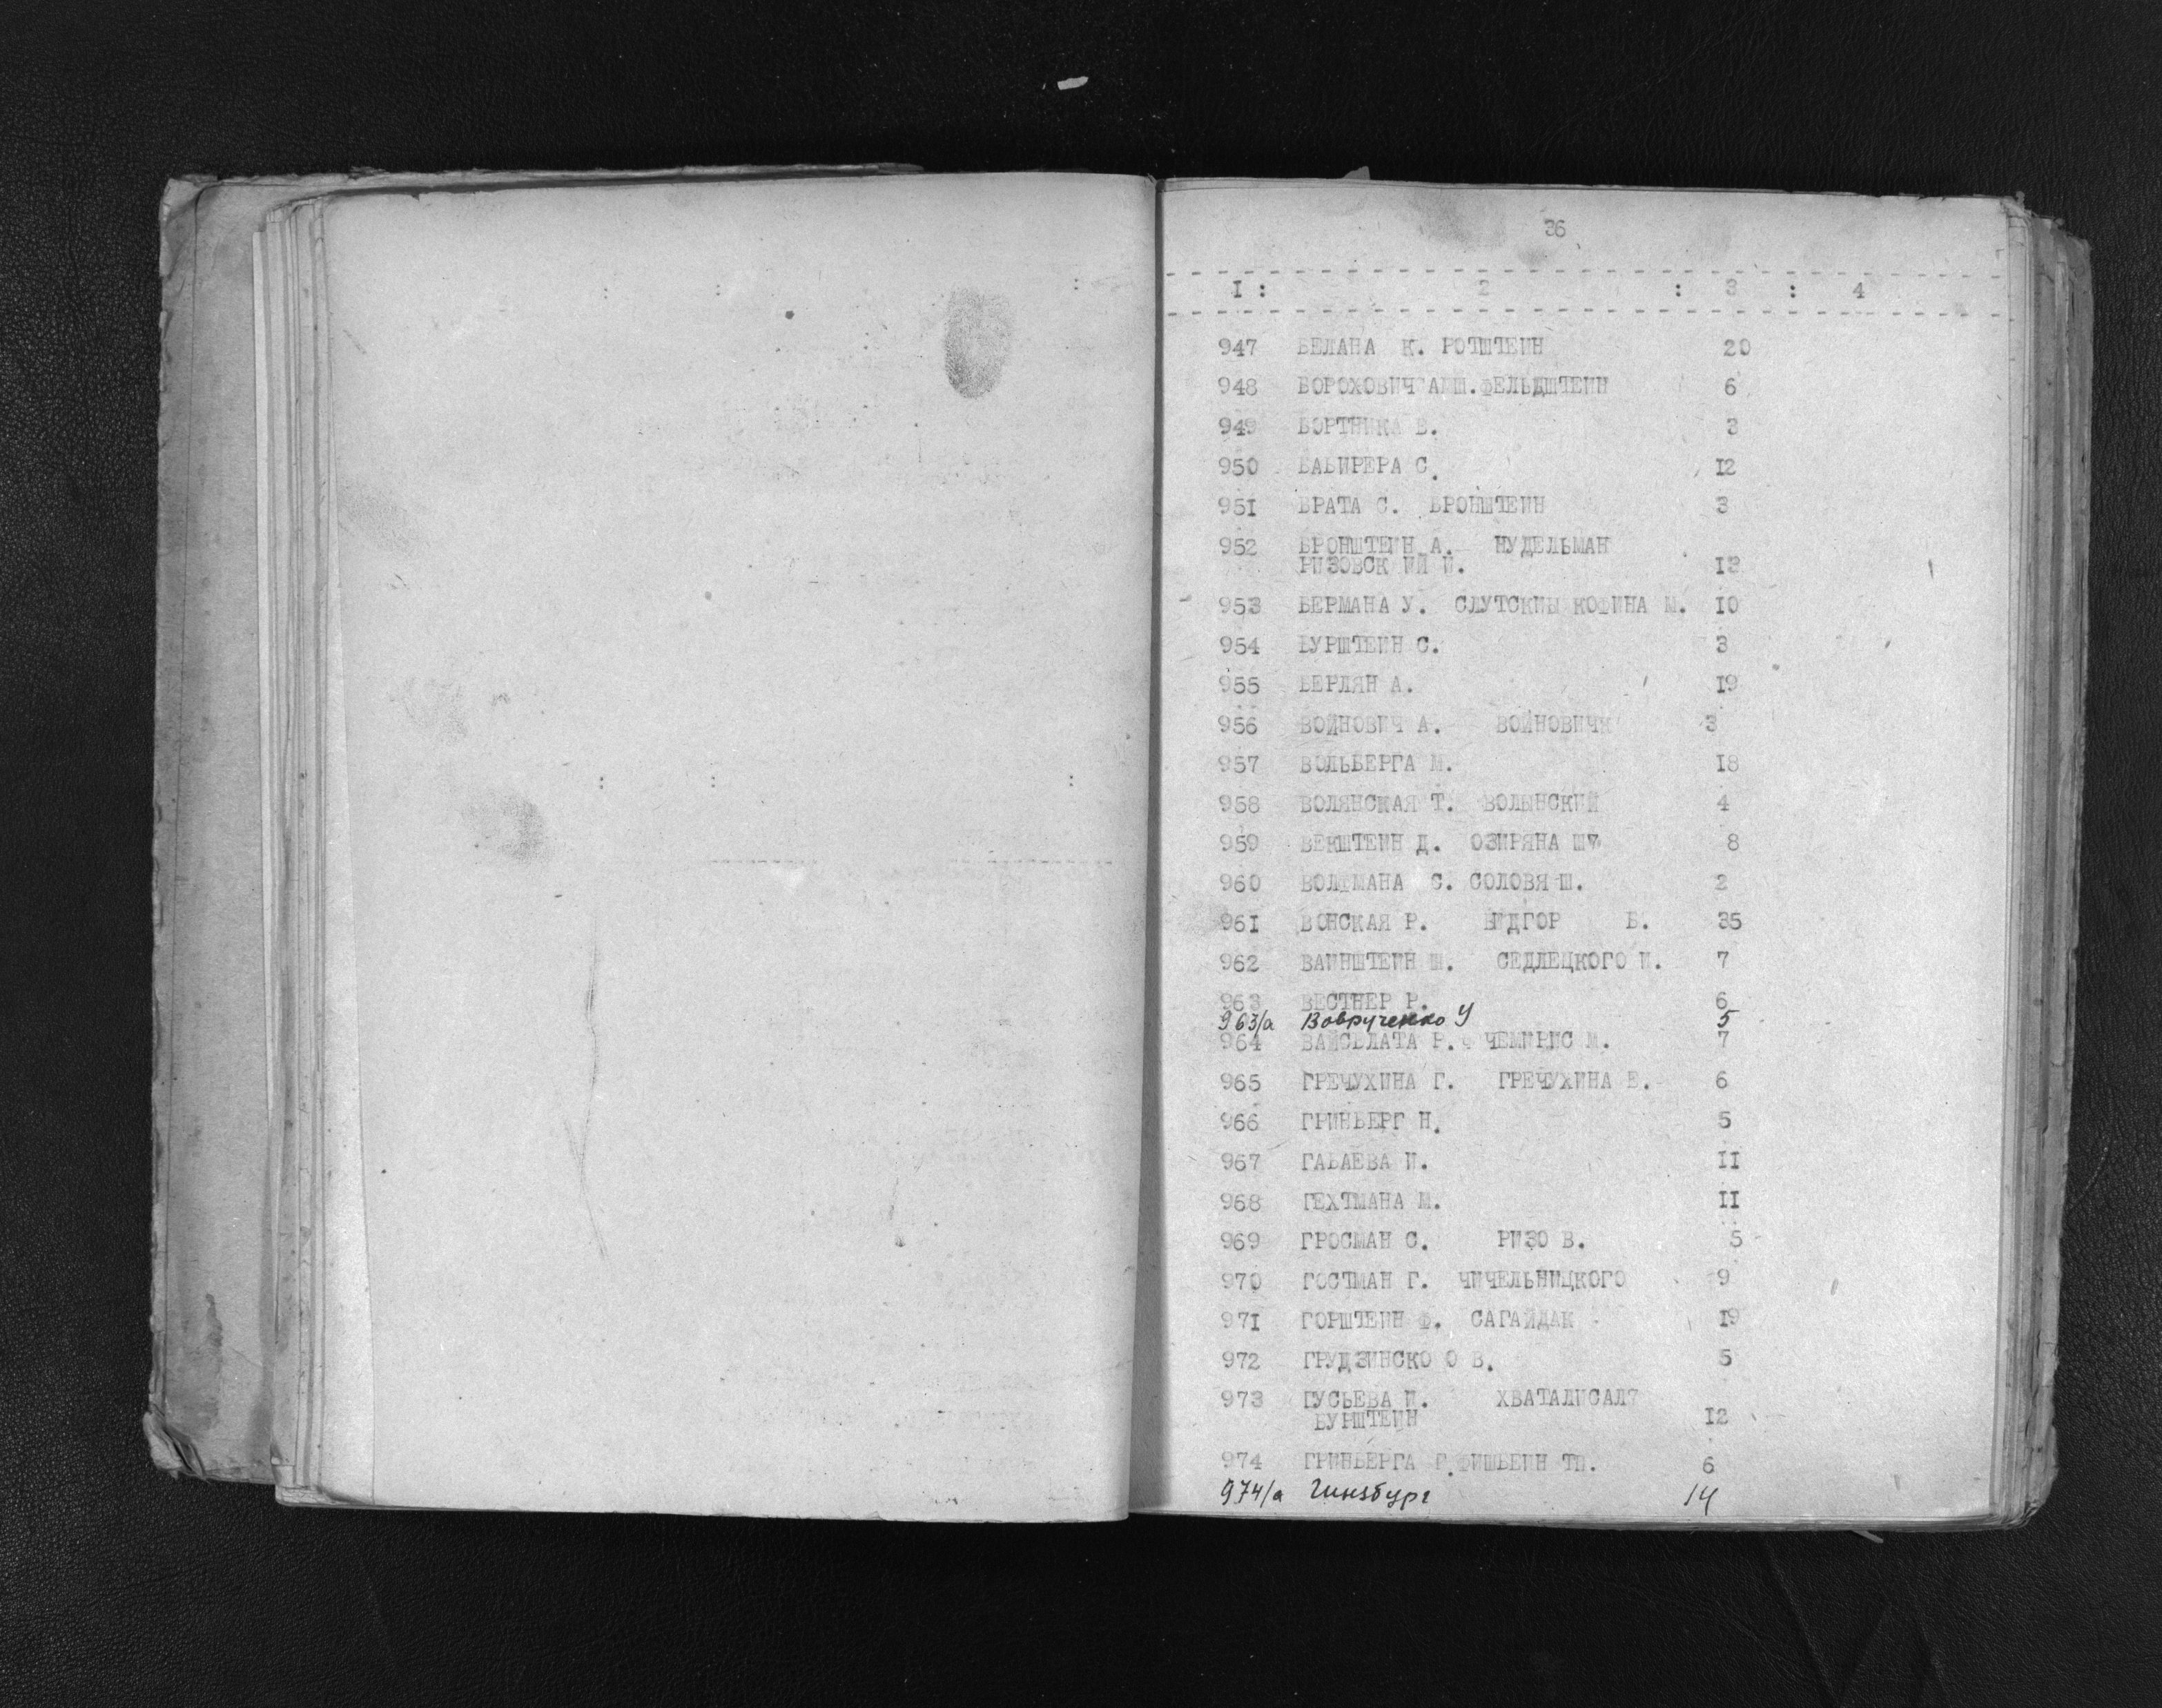 36
I : 2 : 3 : 4
947 БЕЛАНА К. РОТШТЕИН 20
948 БОРОХОВИЧ АШ. ФЕЛЬДШТЕИН 6
949 БОРТНИКА В. 3
950 БАБИРЕРА С. I2
951 БРАТА С. БРОНШТЕИН 3
952 БРОНШТЕИН А. НУДЕЛЬМАН
РИЗОВСК ИЙ И. I3
953 БЕРМАНА У. СЛУТСКИЫ КОФИНА М. I0
954 БУРШТЕИН С. 3
955 БЕРЛЯН А. I9
956 ВОЙНОВИЧ А. ВОЙНОВИЧИ 3
957 ВОЛЬБЕРГА М. I8
958 ВОЛЯНСКАЯ Т. ВОЛЫНСКИЙ 4
959 ВЕКШТЕИН Д. ОЗИРЯНА Ш 8
960 ВОЛТМАНА С. СОЛОВЯ Ш. 2
961 ВОНСКАЯ Р. ВИДГОР Б. 35
962 ВАИНШТЕИН Ш. СЕДЛЕЦКОГО И. 7
963 ВЕСТНЕР Р. 6
963/а Вовրученко У 5
964 ВАЙСБЛАТА Р. ЧЕМИРИС М. 7
965 ГРЕЧУХИНА Г. ГРЕЧУХИНА Е. 6
966 ГРИНБЕРГ Н. 5
967 ГАБАЕВА И. II
968 ГЕХТМАНА М. II
969 ГРОСМАН С. РИЗО В. 5
970 ГОСТМАН Г. ЧИЧЕЛЬНИЦКОГО 9
971 ГОРШТЕИН Ф. САГАЙДАК I9
972 ГРУДЗИНСКО О В. 5
973 ГУСЬЕВА И. ХВАТАЛИСАЛ
БУРШТЕИН I2
974 ГРИНБЕРГА Г. ФИШБЕИН ТП. 6
974/а Гинзбург 14